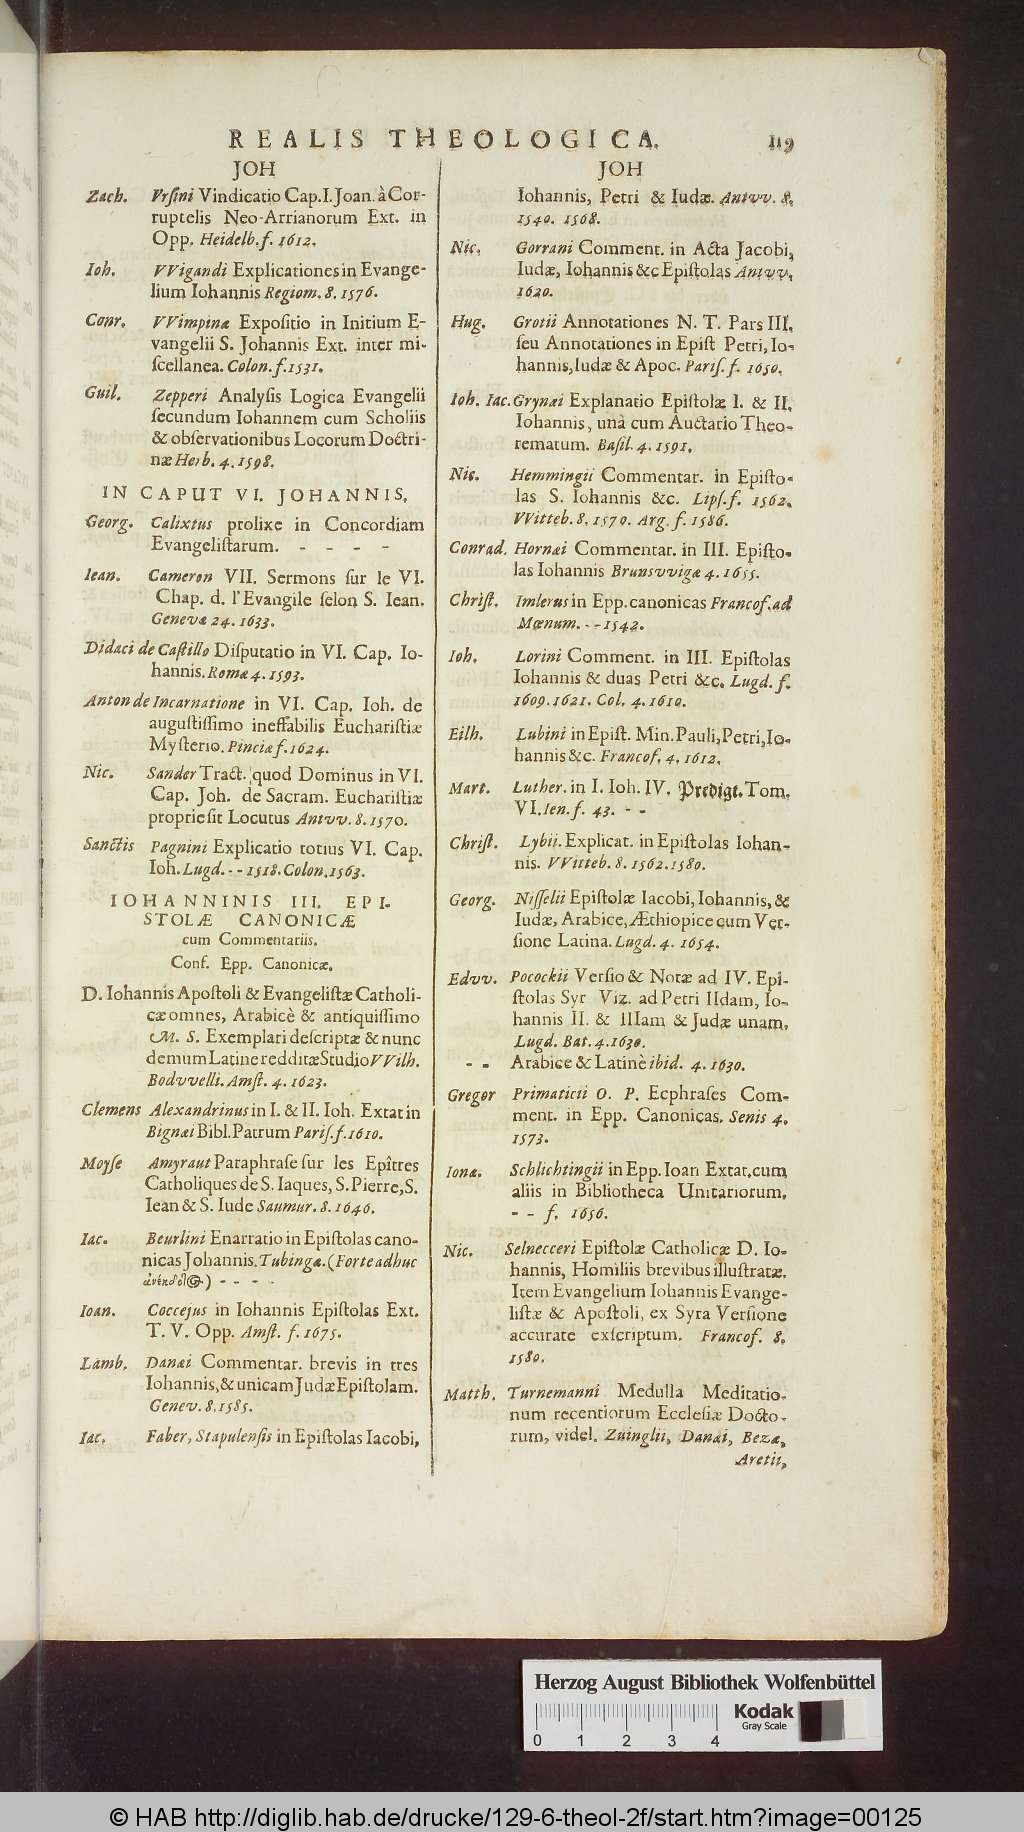 REALIS THEOLOGICA. 119
JOH
Zach. Vrſini Vindicatio Cap. I. Joan. à Cor-
ruptelis Neo-Arrianorum Ext. in
Opp. Heidelb. f. 1612.
Ioh. VVigandi Explicationes in Evange-
lium Iohannis Regiom. 8. 1576.
Conr. VVimpinæ Expoſitio in Initium E-
vangelii S. Johannis Ext. inter mi-
ſcellanea. Colon. f. 1531.
Guil. Zepperi Analyſis Logica Evangelii
ſecundum Iohannem cum Scholiis
& obſervationibus Locorum Doctri-
næ Herb. 4. 1598.
IN CAPUT VI. JOHANNIS.
Georg. Calixtus prolixe in Concordiam
Evangeliſtarum. - - - -
Iean. Cameron VII. Sermons ſur le VI.
Chap. d. l'Evangile ſelon S. Iean.
Genevæ 24. 1633.
Didaci de Caſtillo Diſputatio in VI. Cap. Io-
hannis. Romæ 4. 1593.
Anton de Incarnatione in VI. Cap. Ioh. de
auguſtiſſimo ineffabilis Euchariſtiæ
Myſterio. Pinciæ f. 1624.
Nic. Sander Tract. quod Dominus in VI.
Cap. Joh. de Sacram. Euchariſtiæ
proprie ſit Locutus Antvv. 8. 1570.
Sanctis Pagnini Explicatio totius VI. Cap.
Ioh. Lugd. - - 1518. Colon. 1563.
IOHANNINIS III. EPI-
STOLÆ CANONICÆ
cum Commentariis.
Conf. Epp. Canonicæ.
D. Iohannis Apoſtoli & Evangeliſtæ Catholi-
cæ omnes, Arabicè & antiquiſſimo
M. S. Exemplari deſcriptæ & nunc
demum Latine redditæ Studio VVilh.
Bodvvelli. Amſt. 4. 1623.
Clemens Alexandrinus in I. & II. Ioh. Extat in
Bignæi Bibl. Patrum Pariſ. f. 1610.
Moyſe Amyraut Paraphraſe ſur les Epîtres
Catholiques de S. Iaques, S. Pierre, S.
Iean & S. Iude Saumur. 8. 1646.
Iac. Beurlini Enarratio in Epiſtolas cano-
nicas Johannis. Tubingæ. (Forte adhuc
ἀνέκδοτος) - - - -
Ioan. Coccejus in Iohannis Epiſtolas Ext.
T. V. Opp. Amſt. f. 1675.
Lamb. Danæi Commentar. brevis in tres
Iohannis, & unicam Judæ Epiſtolam.
Genev. 8. 1585.
Iac. Faber, Stapulenſis in Epiſtolas Iacobi,
JOH
Iohannis, Petri & Iudæ. Antvv. 8.
1540. 1568.
Nic. Gorrani Comment. in Acta Jacobi,
Iudæ, Iohannis &c Epiſtolas Antvv.
1620.
Hug. Grotii Annotationes N. T. Pars III.
ſeu Annotationes in Epiſt Petri, Io-
hannis, Iudæ & Apoc. Pariſ. f. 1650.
Ioh. Iac. Grynæi Explanatio Epiſtolæ I. & II.
Iohannis, unà cum Auctario Theo-
rematum. Baſil. 4. 1591.
Nic. Hemmingii Commentar. in Epiſto-
las S. Iohannis &c. Lipſ. f. 1562.
VVitteb. 8. 1570. Arg. f. 1586.
Conrad. Hornæi Commentar. in III. Epiſto-
las Iohannis Brunsvvigæ 4. 1655.
Chriſt. Imlerus in Epp. canonicas Francof. ad
Mœnum. - - 1542.
Ioh. Lorini Comment. in III. Epiſtolas
Iohannis & duas Petri &c. Lugd. f.
1609. 1621. Col. 4. 1610.
Eilh. Lubini in Epiſt. Min. Pauli, Petri, Io-
hannis &c. Francof. 4. 1612.
Mart. Luther. in I. Ioh. IV. Predigt. Tom.
VI. Ien. f. 43. - -
Chriſt. Lybii. Explicat. in Epiſtolas Iohan-
nis. VVitteb. 8. 1562. 1580.
Georg. Niſſelii Epiſtolæ Iacobi, Iohannis, &
Iudæ, Arabice, Æthiopice cum Ver-
ſione Latina. Lugd. 4. 1654.
Edvv. Pocockii Verſio & Notæ ad IV. Epi-
ſtolas Syr Viz. ad Petri IIdam, Io-
hannis II. & IIIam & Judæ unam.
Lugd. Bat. 4. 1630.
- - Arabice & Latinè ibid. 4. 1630.
Gregor Primaticii O. P. Ecphraſes Com-
ment. in Epp. Canonicas. Senis 4.
1573.
Ionæ. Schlichtingii in Epp. Ioan Extat. cum
aliis in Bibliotheca Unitariorum.
- - f. 1656.
Nic. Selnecceri Epiſtolæ Catholicæ D. Io-
hannis, Homiliis brevibus illuſtratæ.
Item Evangelium Iohannis Evange-
liſtæ & Apoſtoli, ex Syra Verſione
accurate exſcriptum. Francof. 8.
1580.
Matth. Turnemanni Medulla Meditatio-
num recentiorum Eccleſiæ Docto-
rum, videl. Zuinglii, Danæi, Bezæ,
Aretii,
Herzog August Bibliothek Wolfenbüttel
Kodak
Gray Scale
0 1 2 3 4
© HAB http://diglib.hab.de/drucke/129-6-theol-2f/start.htm?image=00125